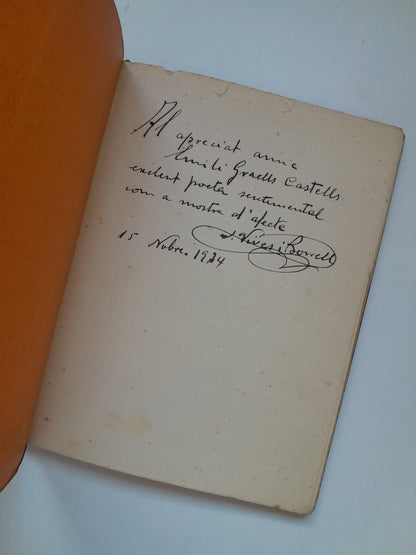 Al
apreciat amic
Emili Graells Castells
exelent poeta sentimental
com a mostra d'afecte
J. Vives i Borrell
15 Nobre. 1924